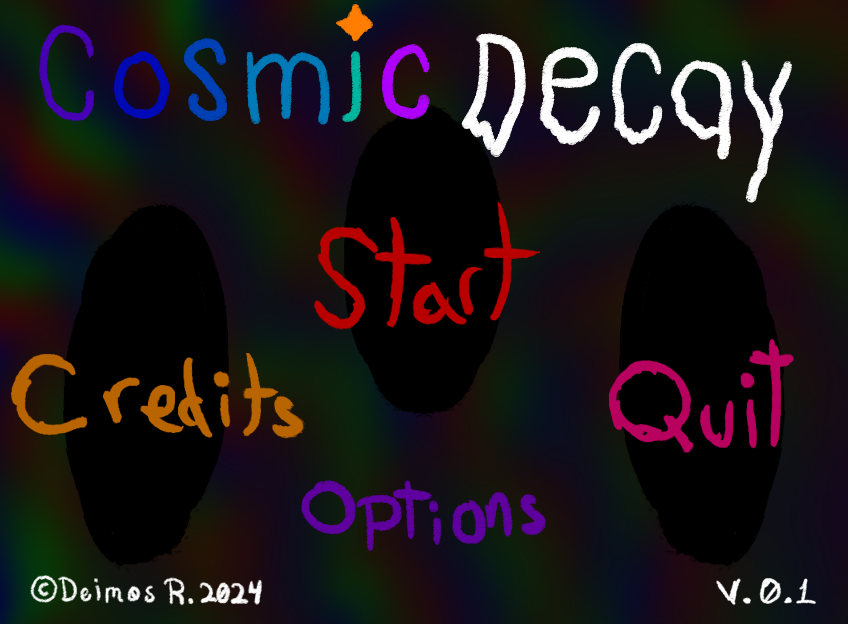 Cosmic Decay
Start
Credits
Quit
Options
©Deimos R. 2024
V.0.1